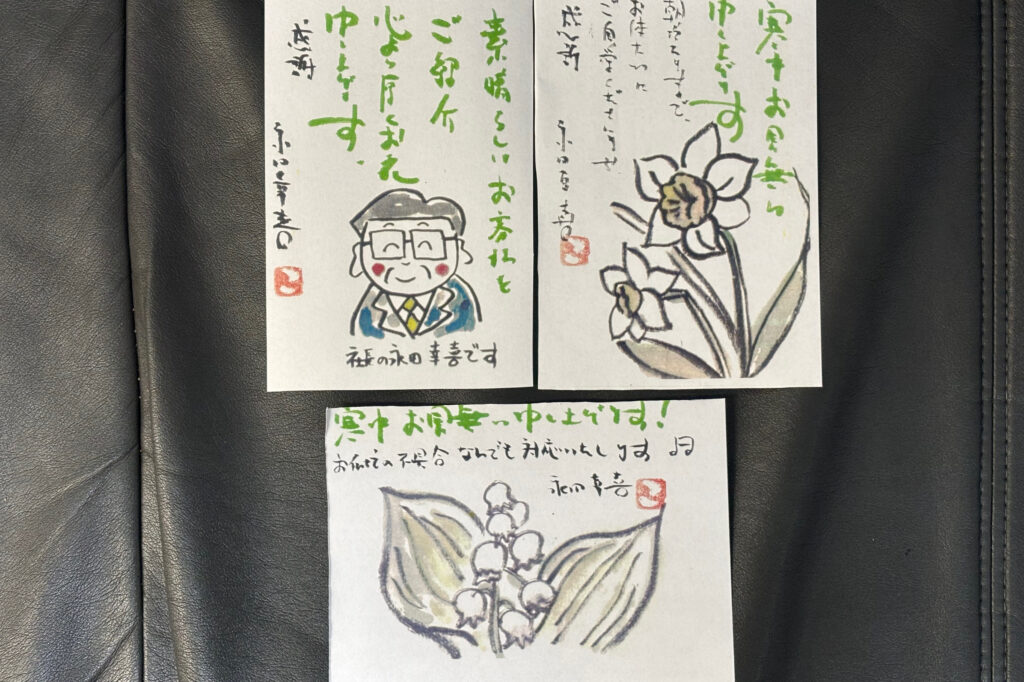 寒中お見舞い
申し上げます
お体大切に
ご自愛くださいませ
感謝
永田幸喜
素晴らしいお客様を
ご紹介
心より厚くお礼
申し上げます。
感謝
永田幸喜
社長の永田幸喜です
寒中お見舞い申し上げます!
お住宅の不具合なんでも対応いたします
永田幸喜